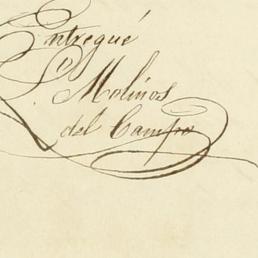 Entregué
Molinos
del Campo